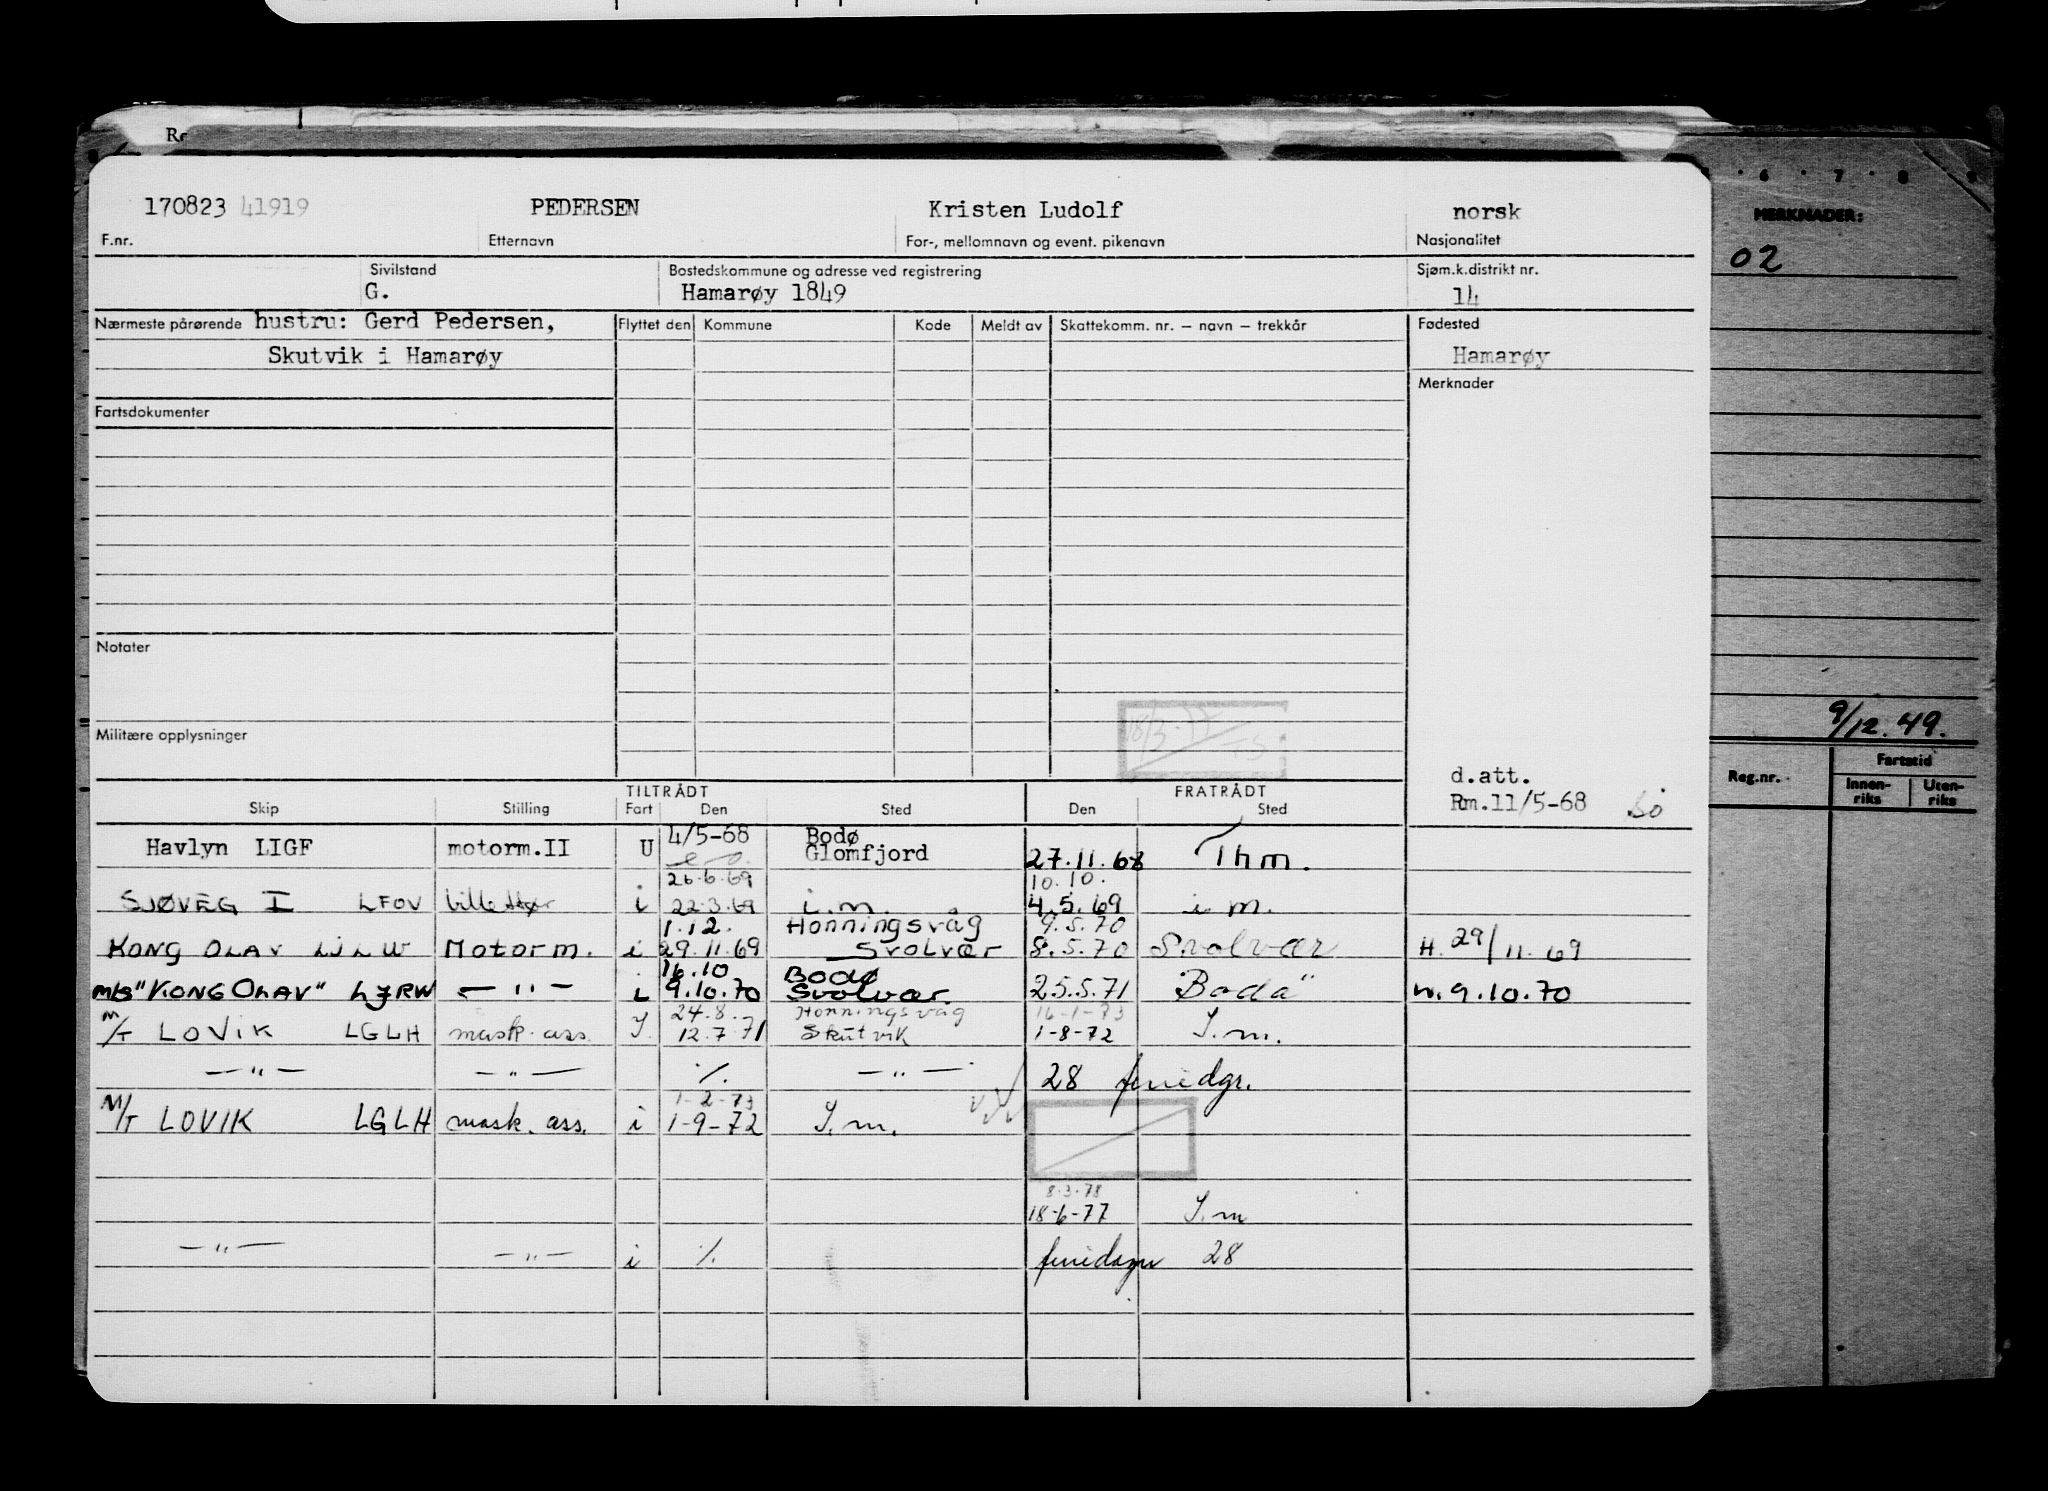 Re
170823 41919 PEDERSEN Kristen Ludolf norsk
F.nr. Etternavn For-, mellomnavn og event. pikenavn Nasjonalitet
Sivilstand Bostedskommune og adresse ved registrering Sjøm.k.distrikt nr.
G. Hamarøy 1849 14
Nærmeste pårørende hustru: Gerd Pedersen, Flyttet den Kommune Kode Meldt av Skattekomm. nr. – navn – trekkår Fødested
Skutvik i Hamarøy Hamarøy
Merknader
Fartsdokumenter
Notater
18/3-77
TS
Militære opplysninger
d.att.
Rm.11/5-68
TILTRÅDT FRATRÅDT
Skip Stilling Fart Den Sted Den Sted
4/5-68 Bodø
Havlyn LIGF motorm.II U Glomfjord 27.11.68 Thm.
26.6.69 10.10.
SJØVEG I LFOV billettør i 22.3.69 i.m. 4.5.69 i m.
1.12. Honningsvåg 9.5.70
KONG OLAV LJLW Motorm. i 29.11.69 Svolvær 8.5.70 Svolvær H. 29/11.69
16.10 Bodø
M/S "KONG OLAV" LJRW — " — i 9.10.70 Svolvær. 25.5.71 Bodø H. 9.10.70
24.8. Honningsvåg 16-1-73
M/T LOVIK LGLH mask. ass. I. 12.7.71 Skutvik 1-8-72 I.m.
— " — — " — ./. — " — 28 feriedgr.
1-2-73
M/T LOVIK LGLH mask. ass. i 1-9-72 I.m.
8.3.78
18-6-77 I.m
— " — — " — i ./. feriedager 28
6 7 8 9
MERKNADER:
02
9/12.49.
Reg.nr. Fartstid
Innen-riks Uten-riks